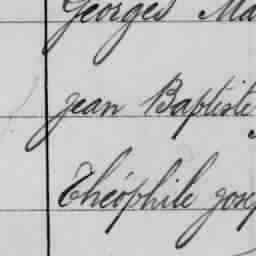 Georges Ma
jean Baptiste
Théophile jose